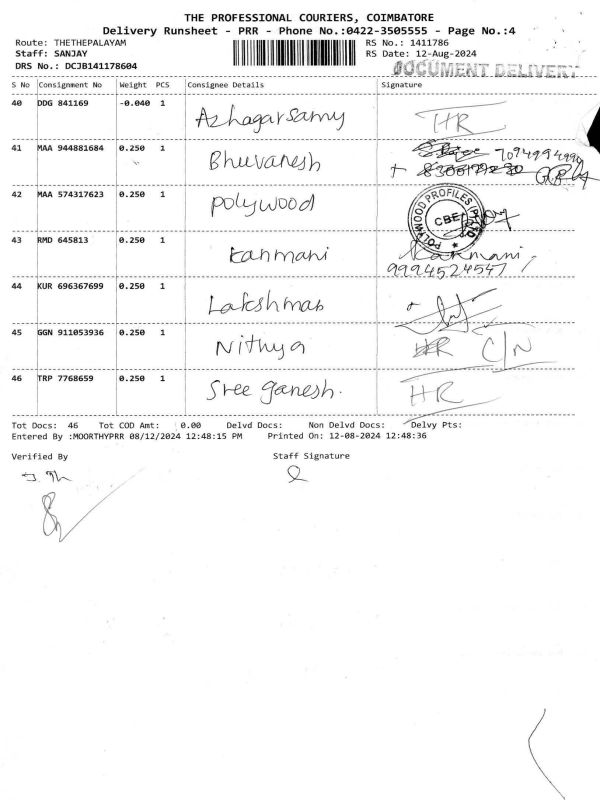 THE PROFESSIONAL COURIERS, COIMBATORE
Delivery Runsheet - PRR - Phone No.:0422-3505555 - Page No.:4
Route: THETHEPALAYAM RS No.: 1411786
Staff: SANJAY RS Date: 12-Aug-2024
DRS No.: DCJB141178604 DOCUMENT DELIVERY
S No Consignment No Weight PCS Consignee Details Signature
40 DDG 841169 -0.040 1 Azhagarsamy HR
41 MAA 944881684 0.250 1 Bhuvanesh
42 MAA 574317623 0.250 1 polywood POLYWOOD PROFILES (P) LTD CBE
43 RMD 645813 0.250 1 kanmani Kanmani,
9994524547
44 KUR 696367699 0.250 1 Lakshman
45 GGN 911053936 0.250 1 Nithya HR C/N
46 TRP 7768659 0.250 1 Sree ganesh. HR
Tot Docs: 46 Tot COD Amt: 0.00 Delvd Docs: Non Delvd Docs: Delvy Pts:
Entered By :MOORTHYPRR 08/12/2024 12:48:15 PM Printed On: 12-08-2024 12:48:36
Verified By Staff Signature